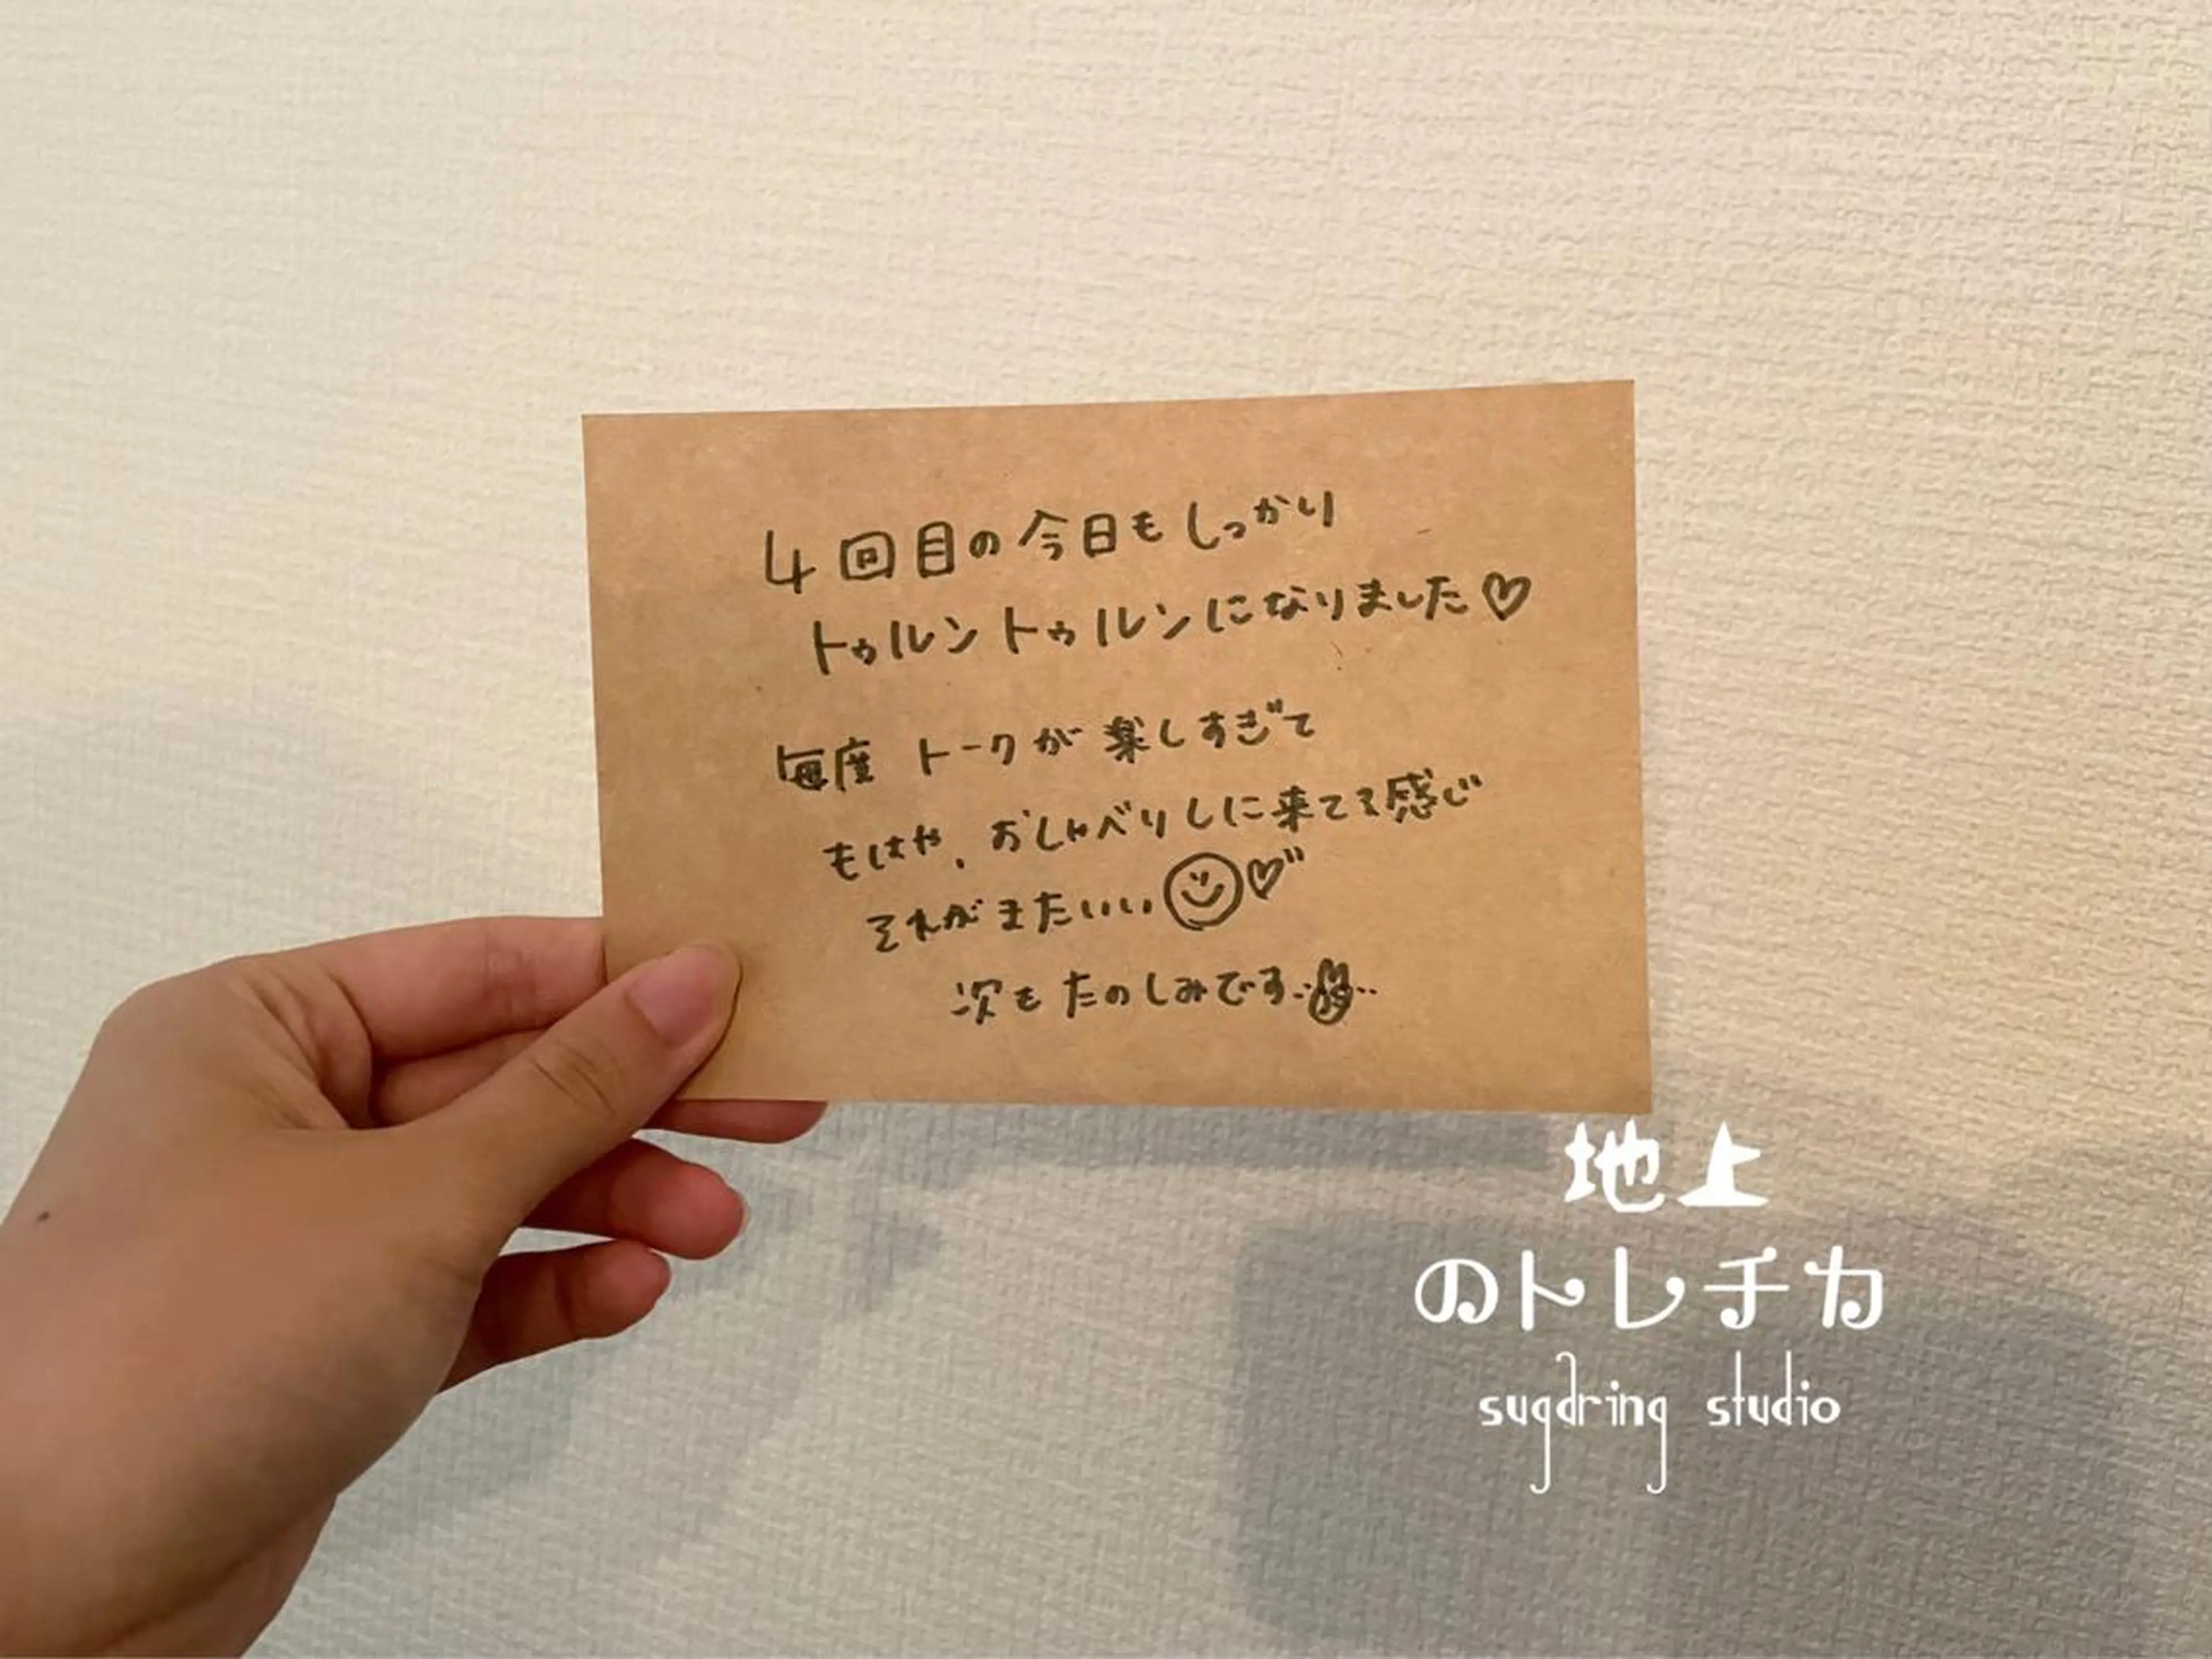 4回目の今日もしっかり
トゥルントゥルンになりました♡
毎度 トークが楽しすぎて
もはや、おしゃべりしに来てる感じ
それがまたいい☺♡
次もたのしみです
地上
のトレチカ
sugdring studio